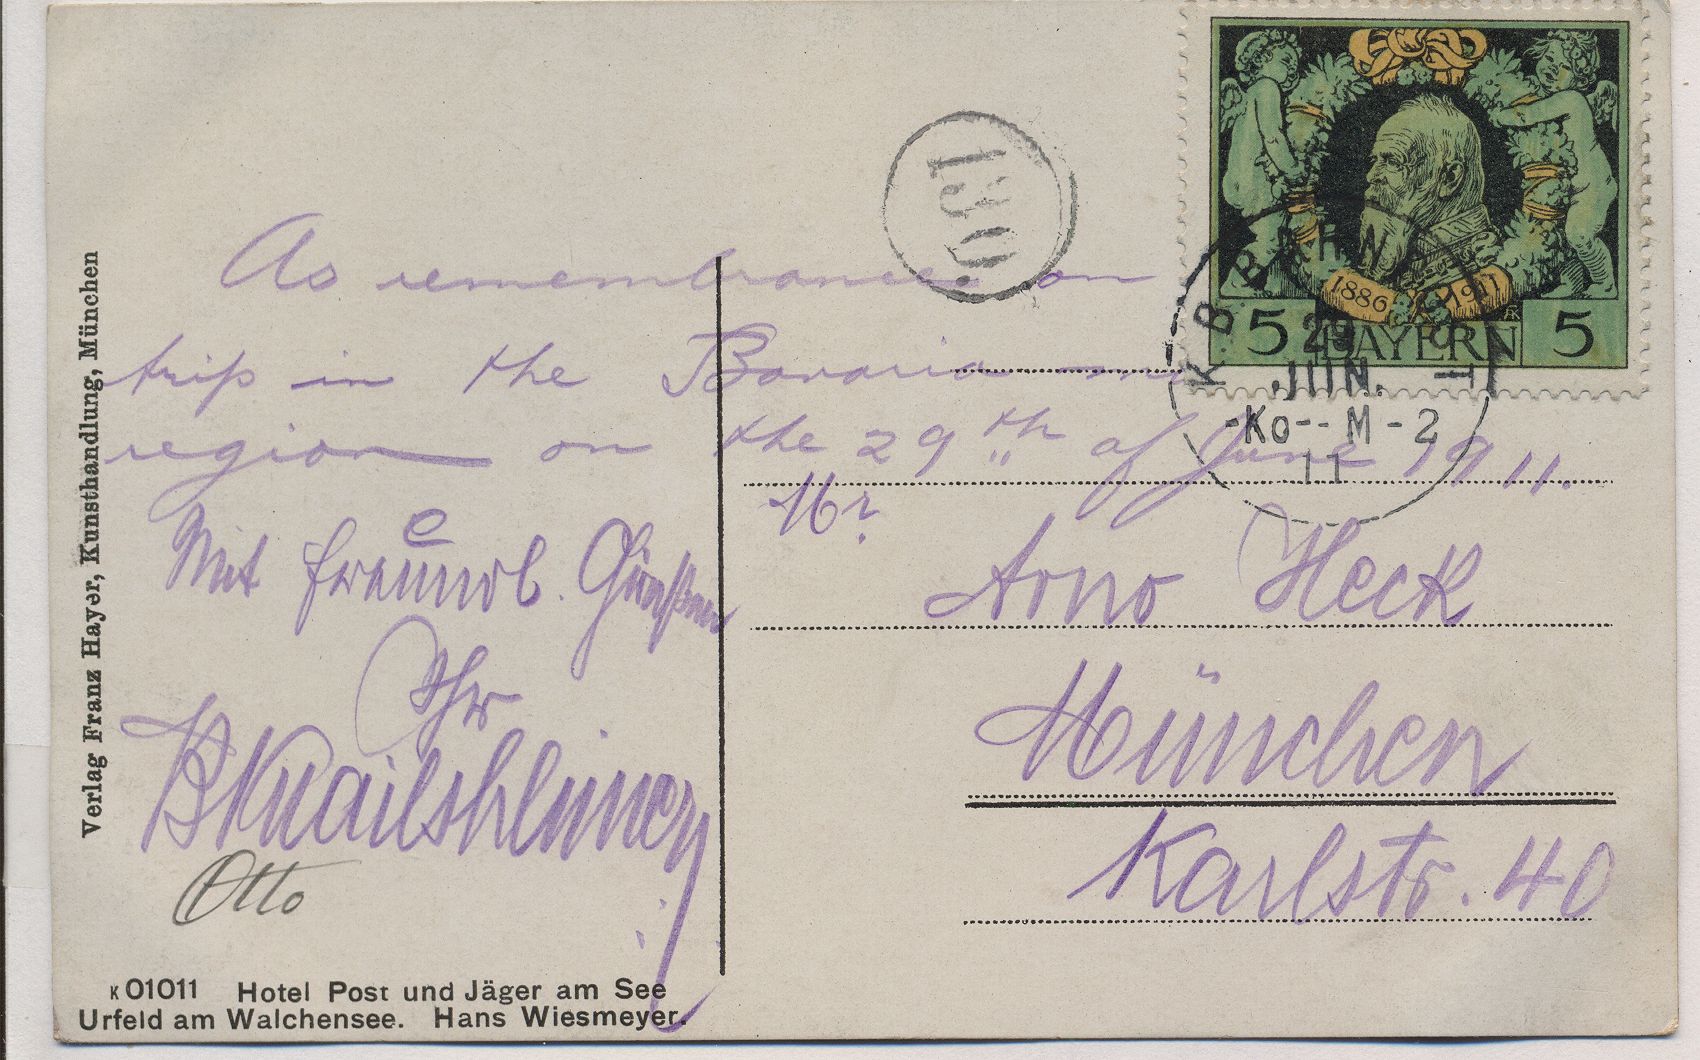 As remembrance on
trip in the Bavaria
region on the 29th of June 1911.
Mit freundl. Grüßen
Ihr
Otto
Verlag Franz Hayer, Kunsthandlung, München
K 01011 Hotel Post und Jäger am See
Urfeld am Walchensee. Hans Wiesmeyer.
190.
1886 1911
5 BAYERN 5
K. B. BAHNPOST
29
JUN.
-Ko--M-2
11
Mr
Arno Heck
München
Karlstr. 40